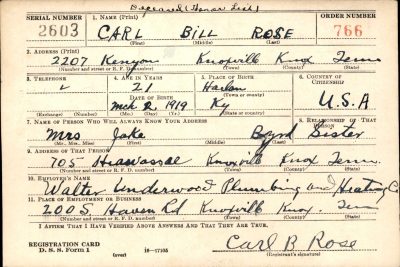 Deceased (Honor List)
SERIAL NUMBER 1. NAME (Print) ORDER NUMBER
2603 CARL BILL ROSE 766
(First) (Middle) (Last)
2. ADDRESS (Print)
2207 Kenyon Knoxville Knox Tenn
(Number and street or R. F. D. number) (Town) (County) (State)
3. TELEPHONE 4. AGE IN YEARS 5. PLACE OF BIRTH 6. COUNTRY OF CITIZENSHIP
21 Harlan
DATE OF BIRTH (Town or county)
Mch 2, 1919 Ky U.S.A
(Exchange) (Number) (Mo.) (Day) (Yr.) (State or country)
7. NAME OF PERSON WHO WILL ALWAYS KNOW YOUR ADDRESS 8. RELATIONSHIP OF THAT PERSON
Mrs Jake Byrd Sister
(Mr., Mrs., Miss) (First) (Middle) (Last)
9. ADDRESS OF THAT PERSON
705 Hiawassae Knoxville Knox Tenn.
(Number and street or R. F. D. number) (Town) (County) (State)
10. EMPLOYER'S NAME
Walter Underwood Plumbing and Heating Co
11. PLACE OF EMPLOYMENT OR BUSINESS
2005 Haven Rd Knoxville Knox. Tenn
(Number and street or R. F. D. number) (Town) (County) (State)
I AFFIRM THAT I HAVE VERIFIED ABOVE ANSWERS AND THAT THEY ARE TRUE.
REGISTRATION CARD
D. S. S. Form 1 (over) 16—17105 Carl B. Rose
(Registrant's signature)